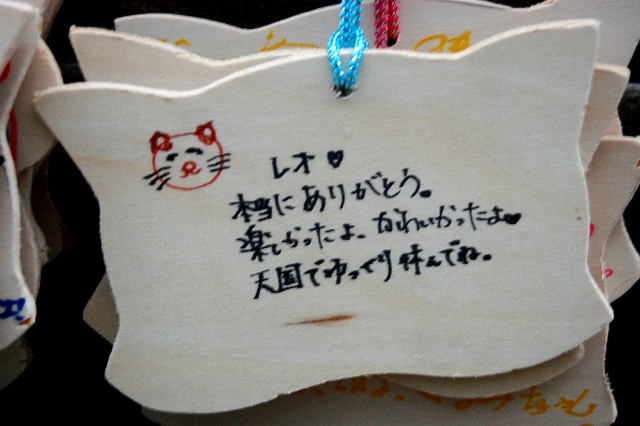 レオ♥
本当にありがとう。
楽しかったよ、かわいかったよ♥
天国でゆっくり休んでね。